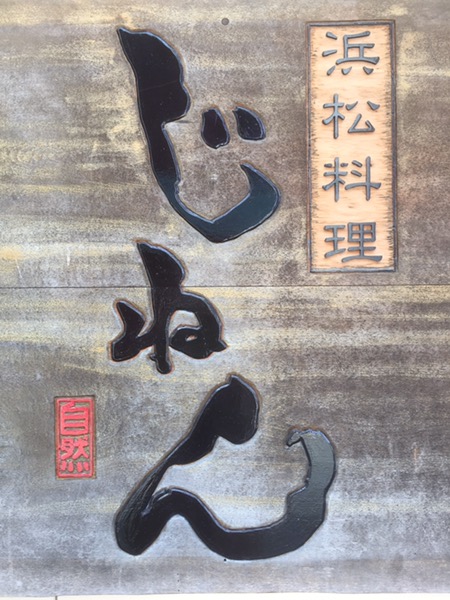 浜松料理
じねん
自然